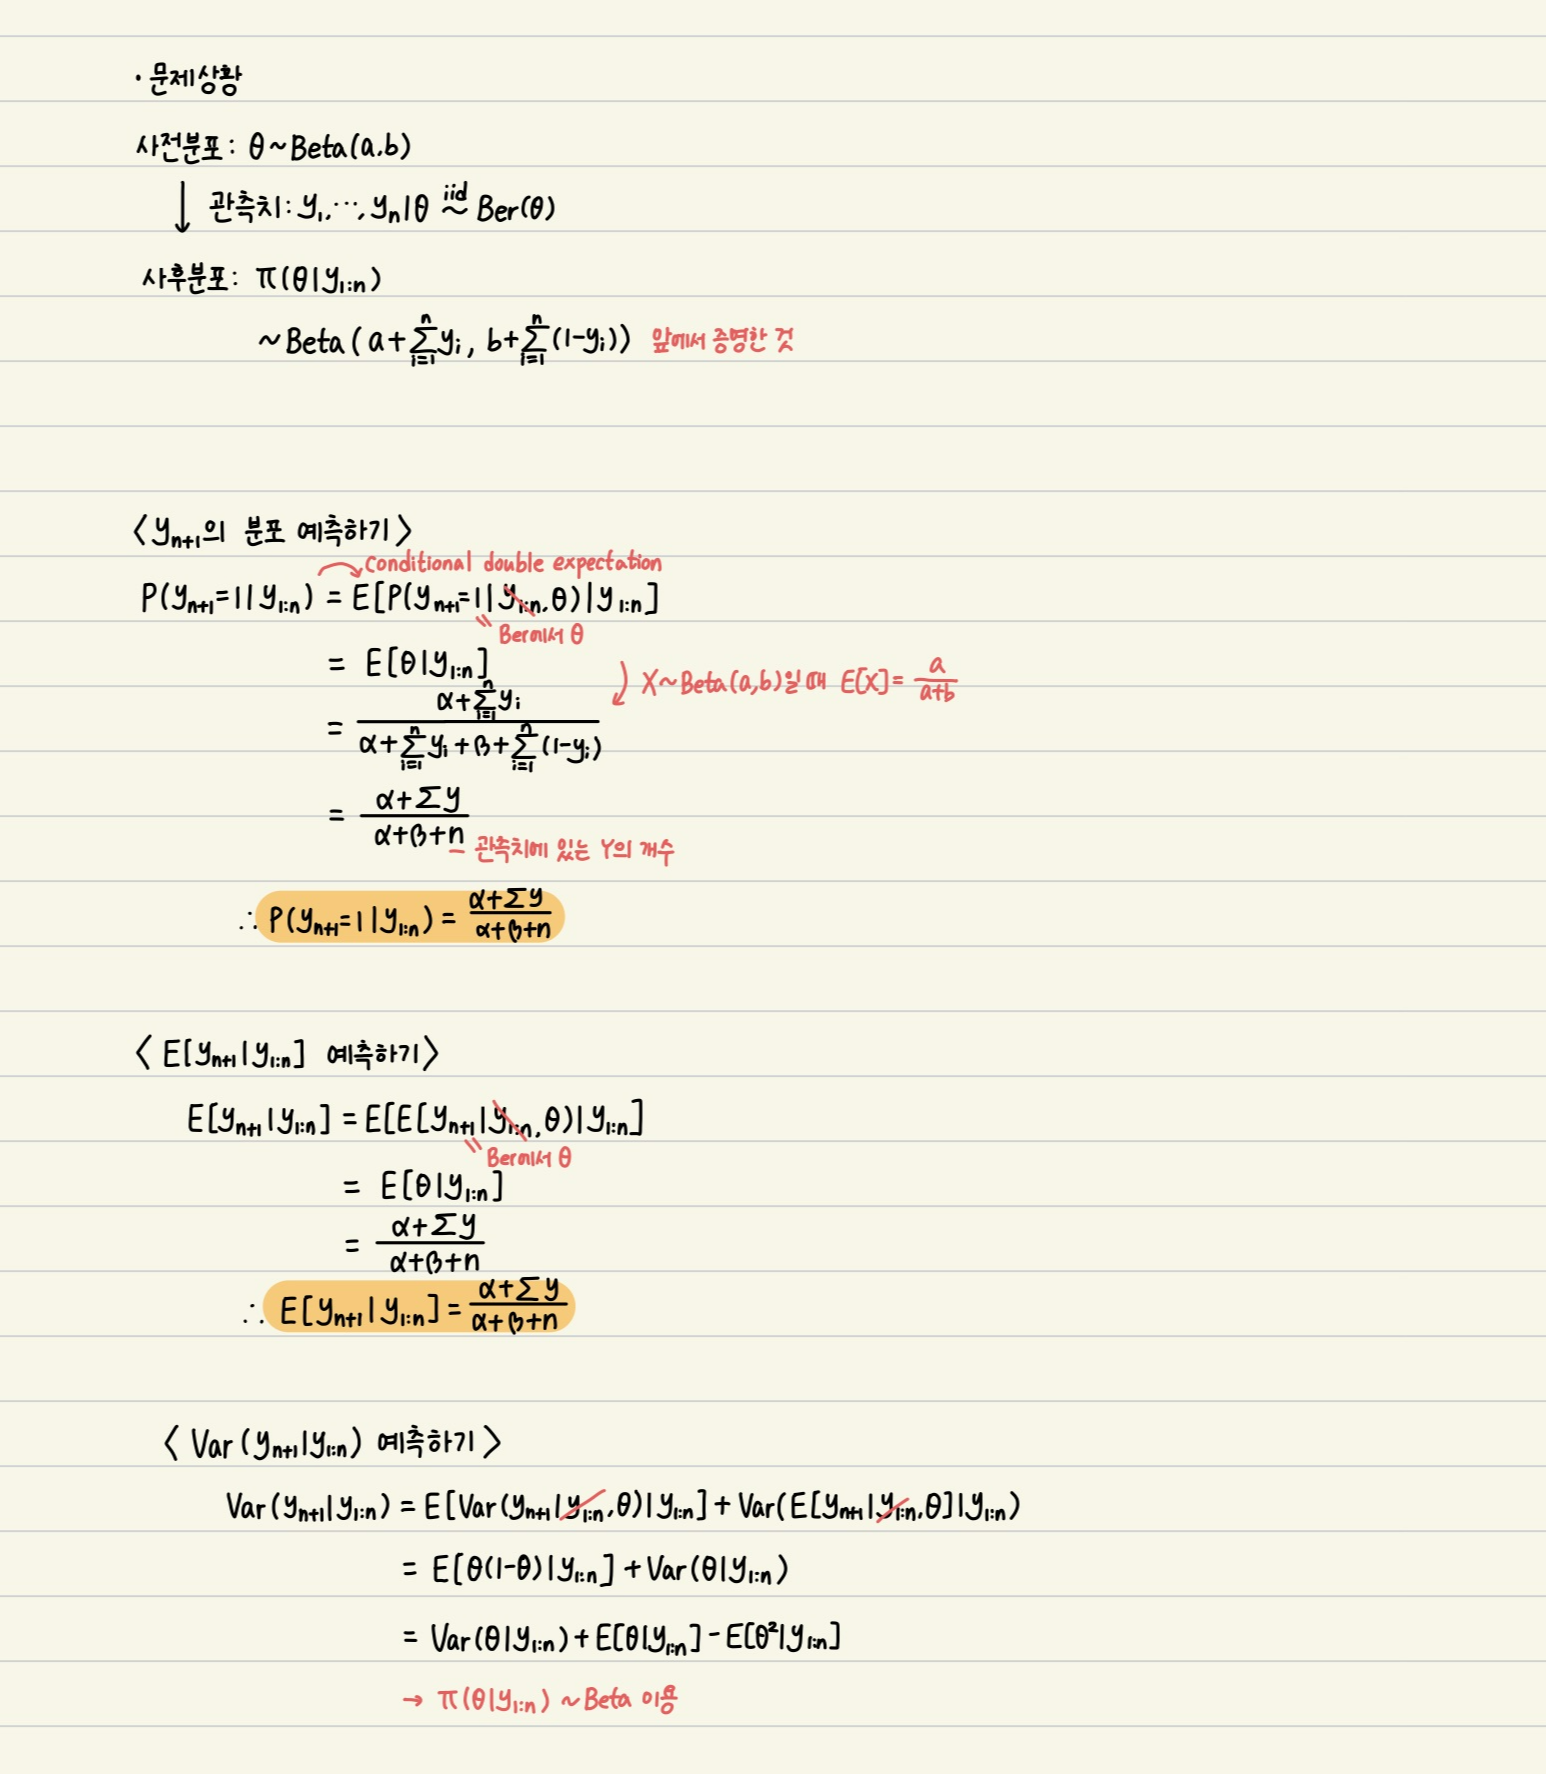 · 문제상황
사전분포: θ~Beta(a.b)
↓ 관측치: y₁, ..., yₙ|θ iid ~ Ber(θ)
사후분포: π(θ|y₁:ₙ)
~Beta(a+∑ⁿᵢ₌₁yᵢ, b+∑ⁿᵢ₌₁(1-yᵢ)) 앞에서 증명한 것
<yₙ₊₁의 분포 예측하기>
Conditional double expectation
P(yₙ₊₁=1|y₁:ₙ) = E[P(yₙ₊₁=1|y₁:ₙ,θ)|y₁:ₙ]
" Ber에서 θ
= E[θ|y₁:ₙ]
X~Beta(a,b)일 때 E[X]= a/(a+b)
= (α+∑ⁿᵢ₌₁yᵢ)/(α+∑ⁿᵢ₌₁yᵢ+β+∑ⁿᵢ₌₁(1-yᵢ))
= (α+∑y)/(α+β+n)
관측치에 있는 Y의 개수
∴ P(yₙ₊₁=1|y₁:ₙ) = (α+∑y)/(α+β+n)
<E[yₙ₊₁|y₁:ₙ] 예측하기>
E[yₙ₊₁|y₁:ₙ] = E[E[yₙ₊₁|y₁:ₙ,θ)|y₁:ₙ]
" Ber에서 θ
= E[θ|y₁:ₙ]
= (α+∑y)/(α+β+n)
∴ E[yₙ₊₁|y₁:ₙ] = (α+∑y)/(α+β+n)
<Var(yₙ₊₁|y₁:ₙ) 예측하기>
Var(yₙ₊₁|y₁:ₙ) = E[Var(yₙ₊₁|y₁:ₙ,θ)|y₁:ₙ] + Var(E[yₙ₊₁|y₁:ₙ,θ]|y₁:ₙ)
= E[θ(1-θ)|y₁:ₙ] + Var(θ|y₁:ₙ)
= Var(θ|y₁:ₙ) + E[θ|y₁:ₙ] - E[θ²|y₁:ₙ]
→ π(θ|y₁:ₙ) ~Beta 이용